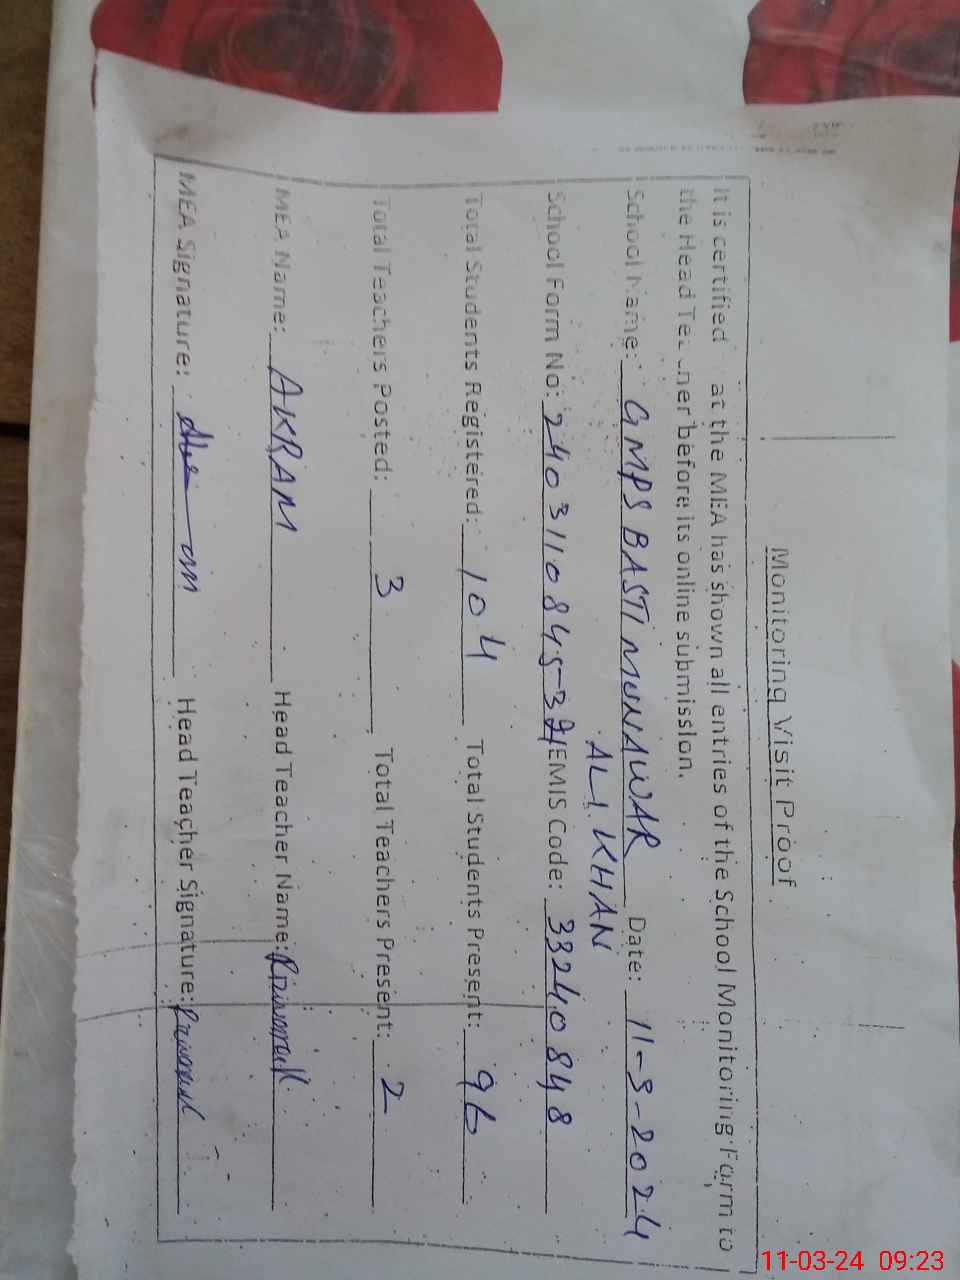 Monitoring Visit Proof
It is certified at the MEA has shown all entries of the School Monitoring Form to
the Head Teacher before its online submission.
School Name: GMPS BASTI MUNAWAR Date: 11-3-2024
ALI KHAN
School Form No: EMIS Code: 33240848
Total Students Registered: 104 Total Students Present: 96
Total Teachers Posted: 3 Total Teachers Present: 2
MEA Name: AKRAM Head Teacher Name:
MEA Signature: Head Teacher Signature:
11-03-24 09:23